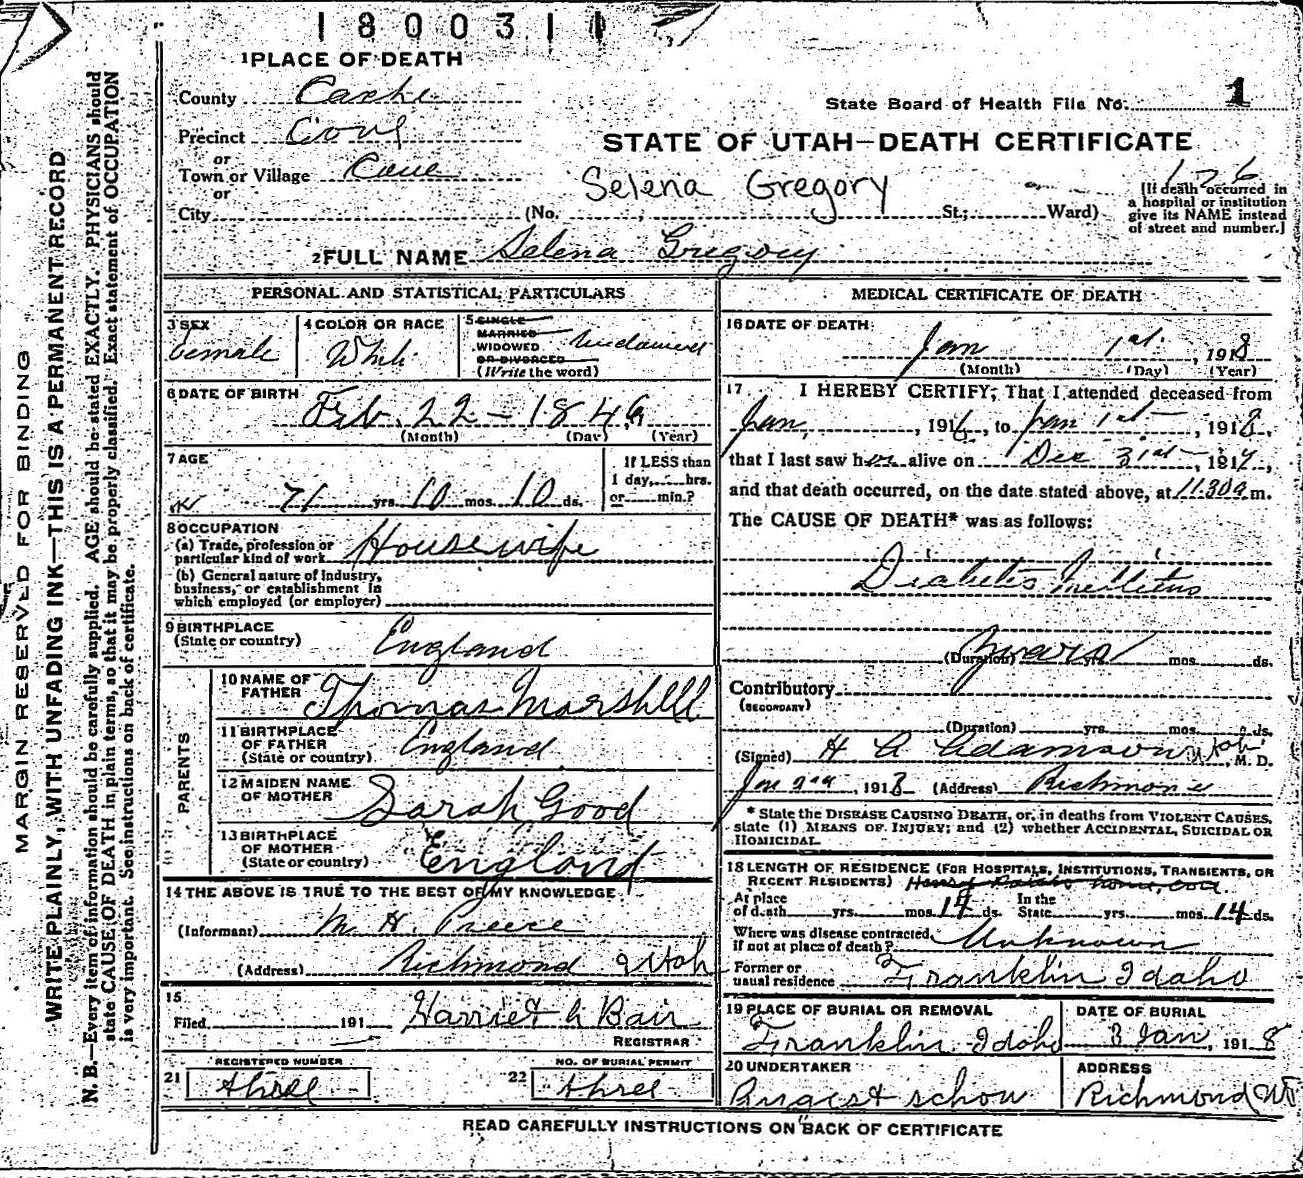 1800311
1 PLACE OF DEATH
County Cache
State Board of Health File No. 1
Precinct Cove
or
STATE OF UTAH—DEATH CERTIFICATE
Town or Village Cove
or
Selena Gregory
126
City (No. St.; Ward)
[If death occurred in
a hospital or institution
give its NAME instead
of street and number.]
2 FULL NAME Selena Gregory
PERSONAL AND STATISTICAL PARTICULARS
3 SEX
Female
4 COLOR OR RACE
White
5 SINGLE
MARRIED
WIDOWED
OR DIVORCED
(Write the word)
Widowed
6 DATE OF BIRTH
Feb. 22 - 1846
(Month) (Day) (Year)
7 AGE
71 yrs. 10 mos. 10 ds.
If LESS than
1 day, hrs.
or min.?
8 OCCUPATION
(a) Trade, profession or
particular kind of work Housewife
(b) General nature of industry,
business, or establishment in
which employed (or employer)
9 BIRTHPLACE
(State or country) England
PARENTS
10 NAME OF
FATHER Thomas Marshlll
11 BIRTHPLACE
OF FATHER
(State or country) England
12 MAIDEN NAME
OF MOTHER Sarah Good
13 BIRTHPLACE
OF MOTHER
(State or country) England
14 THE ABOVE IS TRUE TO THE BEST OF MY KNOWLEDGE
(Informant) M. H. Preece
(Address) Richmond Utah
15
Filed 191 Harriet A Bair
REGISTRAR
REGISTERED NUMBER
21 three
NO. OF BURIAL PERMIT
22 three
MEDICAL CERTIFICATE OF DEATH
16 DATE OF DEATH
Jan 1st, 1918
(Month) (Day) (Year)
17 I HEREBY CERTIFY, That I attended deceased from
Jan, 1916, to Jan 1st, 1918,
that I last saw her alive on Dec 31st, 1917,
and that death occurred, on the date stated above, at 11.30a m.
The CAUSE OF DEATH* was as follows:
Diabetis Mellitus
(Duration) years yrs. mos. ds.
Contributory
(SECONDARY)
(Duration) yrs. mos. ds.
(Signed) H A Adamson Utah, M. D.
Jan 2nd, 1918 (Address) Richmond
* State the DISEASE CAUSING DEATH, or, in deaths from VIOLENT CAUSES,
state (1) MEANS OF INJURY; and (2) whether ACCIDENTAL, SUICIDAL OR
HOMICIDAL.
18 LENGTH OF RESIDENCE (FOR HOSPITALS, INSTITUTIONS, TRANSIENTS, OR
RECENT RESIDENTS)
At place
of death yrs. mos. 14 ds. In the
State yrs. mos. 14 ds.
Where was disease contracted,
if not at place of death? Unknown
Former or
usual residence Franklin Idaho
19 PLACE OF BURIAL OR REMOVAL
Franklin Idaho
DATE OF BURIAL
3 Jan, 1918
20 UNDERTAKER
August schow
ADDRESS
Richmond Ut
READ CAREFULLY INSTRUCTIONS ON BACK OF CERTIFICATE
MARGIN RESERVED FOR BINDING
WRITE PLAINLY, WITH UNFADING INK—THIS IS A PERMANENT RECORD
N. B.—Every item of information should be carefully supplied. AGE should be stated EXACTLY. PHYSICIANS should
state CAUSE OF DEATH in plain terms, so that it may be properly classified. Exact statement of OCCUPATION
is very important. See instructions on back of certificate.